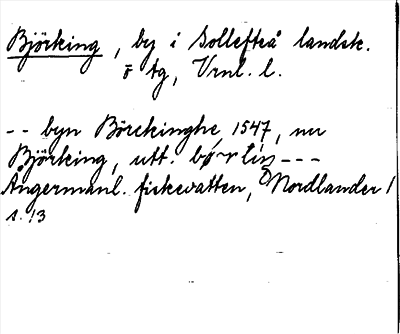 Björking, by i Sollefteå landsk.
o tg, Vrnl. l.
-- byn Börckinghe 1547, nu
Björking, utt. børlin ---
Ångermanl. fiskevatten, Nordlander 1
s. 13